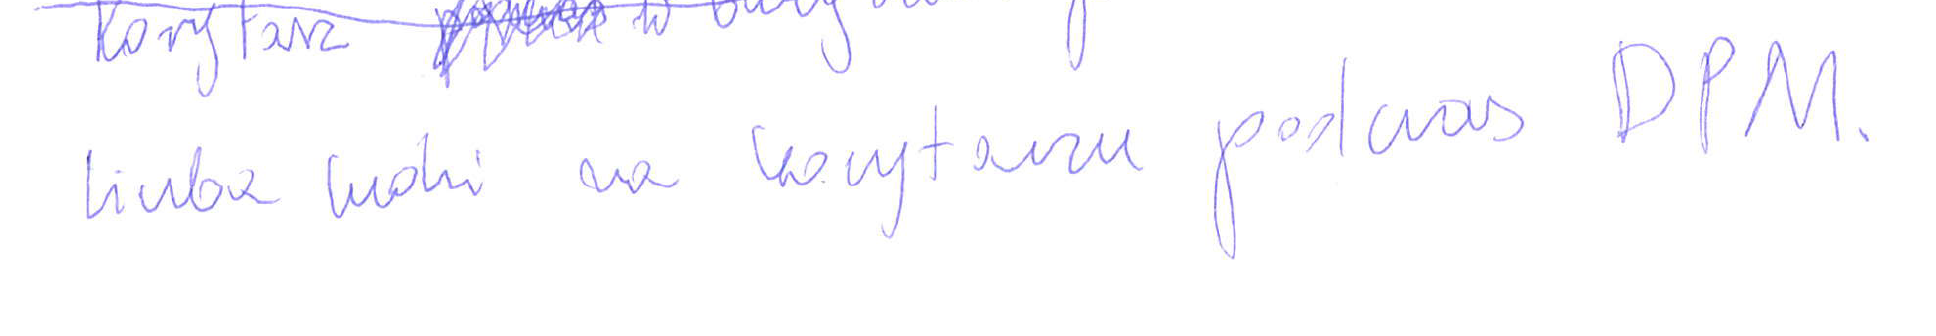 Korytarz w
liczba ludzi na korytarzu podczas DPM.